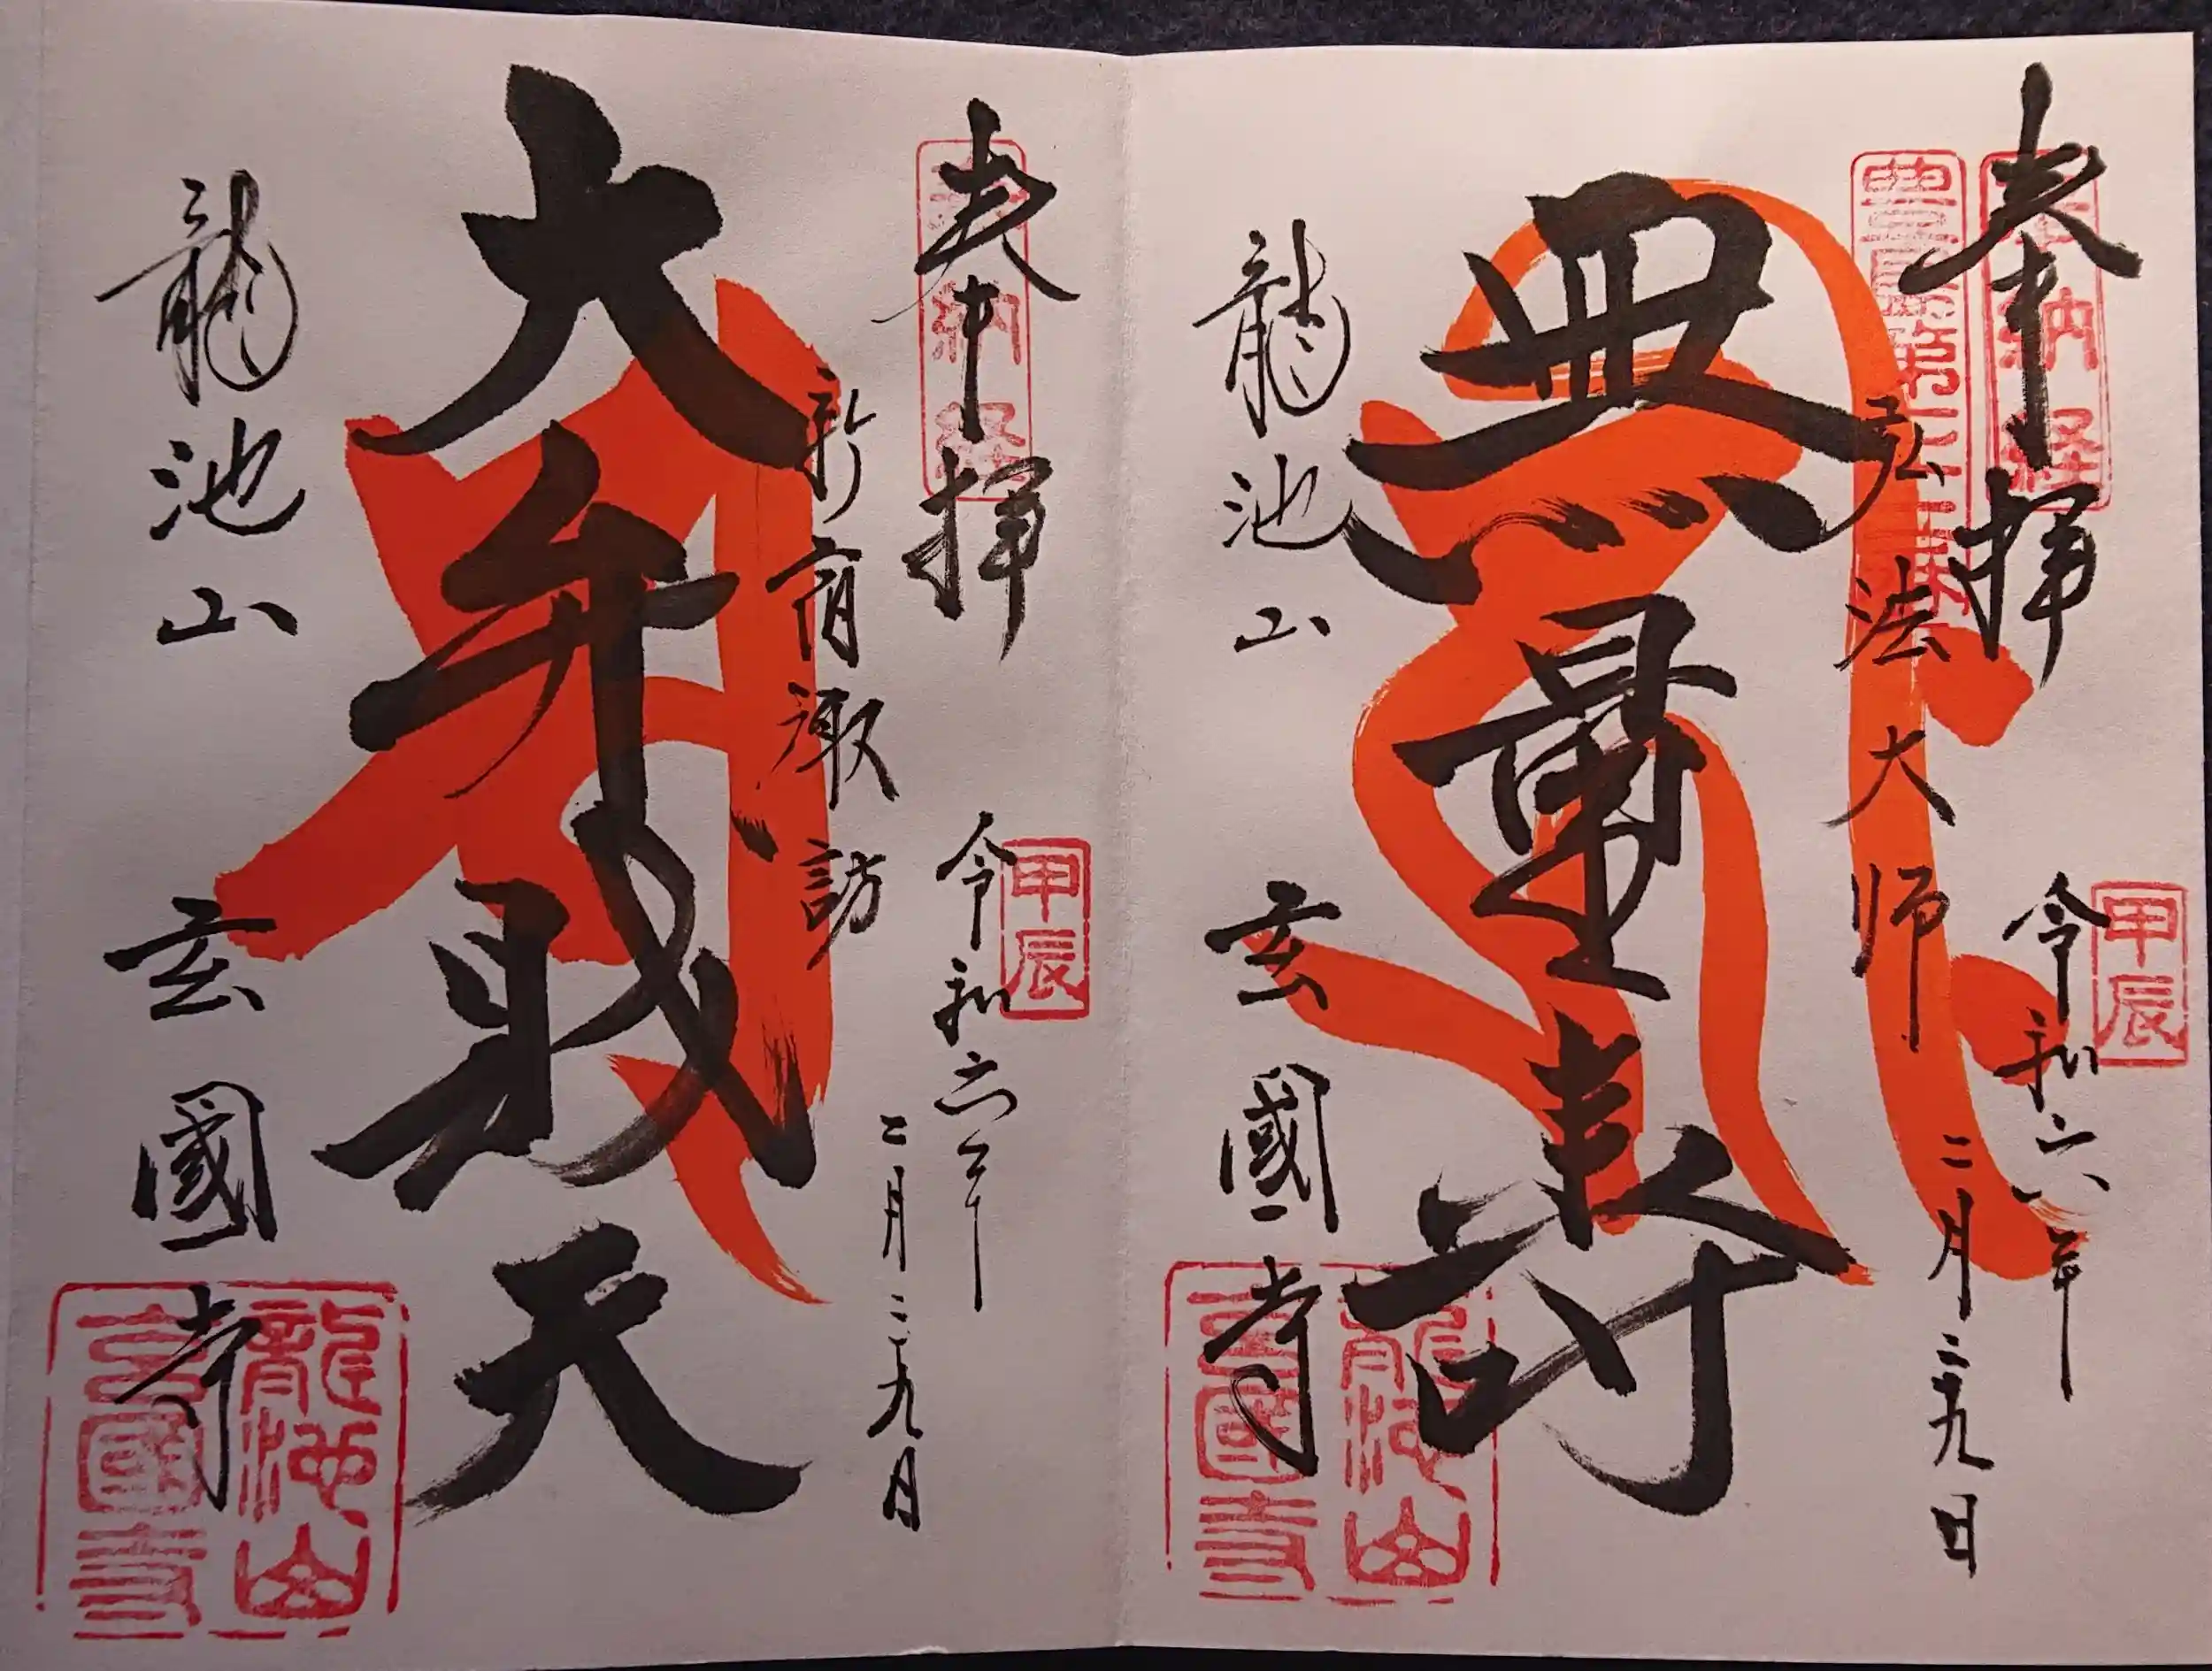 奉拝
奉納経
令和六年
甲辰
二月二十九日
弘法大師
無量壽
龍池山
玄國寺
龍池山
玄國寺
奉拝
奉納経
令和六年
甲辰
二月二十九日
新宿諏訪
大弁財天
龍池山
玄國寺
龍池山
玄國寺